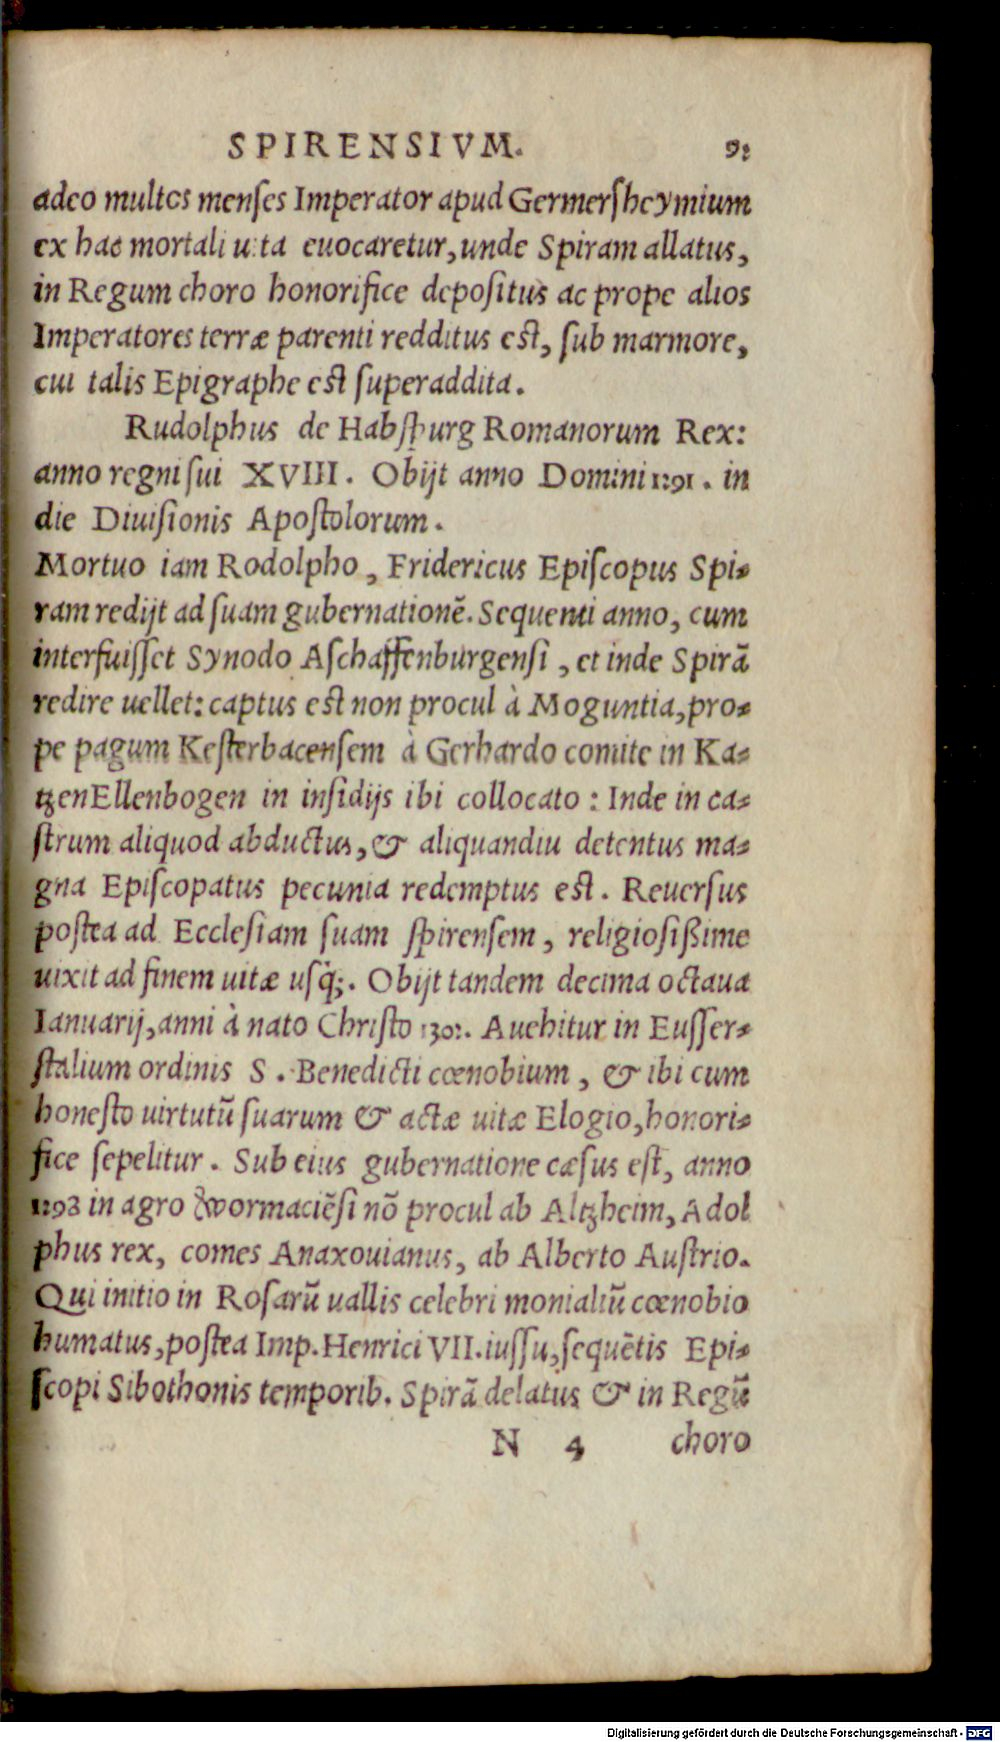 SPIRENSIVM.
adeo multos menses Imperator apud Germersheymium
ex hac mortali uita euocaretur, unde Spiram allatus,
in Regum choro honorifice depositus ac prope alios
Imperatores terræ parenti redditus est, sub marmore,
cui talis Epigraphe est superaddita.
Rudolphus de Habspurg Romanorum Rex:
anno regni sui XVIII. Obijt anno Domini 1291. in
die Diuisionis Apostolorum.
Mortuo iam Rodolpho, Fridericus Episcopus Spi-
ram redijt ad suam gubernationē. Sequenti anno, cum
interfuisset Synodo Aschaffenburgensi, et inde Spirā
redire uellet: captus est non procul à Moguntia, pro-
pe pagum Kesterbacensem à Gerhardo comite in Ka-
tzenEllenbogen in insidijs ibi collocato: Inde in ca-
strum aliquod abductus, & aliquandiu detentus ma-
gna Episcopatus pecunia redemptus est. Reuersus
postea ad Ecclesiam suam spirensem, religiosißime
uixit ad finem uitæ usq;. Obijt tandem decima octaua
Ianuarij, anni à nato Christo Auehitur in Eusser-
stalium ordinis S. Benedicti cœnobium, & ibi cum
honesto uirtutū suarum & actæ uitæ Elogio, honori-
fice sepelitur. Sub eius gubernatione cæsus est, anno
1298 in agro wormaciēsi nō procul ab Altzheim, Adol
phus rex, comes Anaxouianus, ab Alberto Austrio.
Qui initio in Rosarū uallis celebri monialiū cœnobio
humatus, postea Imp. Henrici VII. iussu, sequētis Epi-
scopi Sibothonis temporib. Spirā delatus & in Regū
N 4 choro
Digitalisierung gefördert durch die Deutsche Forschungsgemeinschaft - DFG